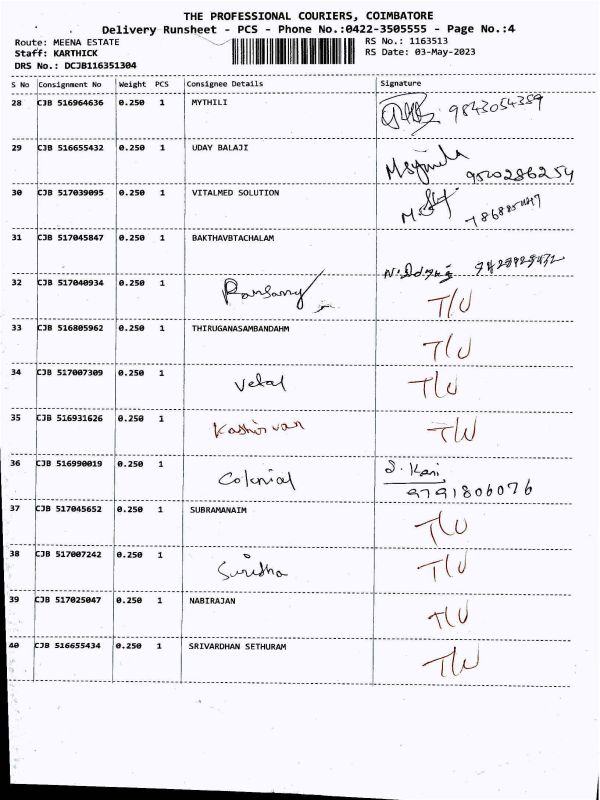 THE PROFESSIONAL COURIERS, COIMBATORE
Delivery Runsheet - PCS - Phone No.:0422-3505555 - Page No.:4
Route: MEENA ESTATE RS No.: 1163513
Staff: KARTHICK RS Date: 03-May-2023
DRS No.: DCJB116351304
S No Consignment No Weight PCS Consignee Details Signature
28 CJB 516964636 0.250 1 MYTHILI 9843054359
29 CJB 516655432 0.250 1 UDAY BALAJI 9500286254
30 CJB 517039095 0.250 1 VITALMED SOLUTION
31 CJB 517045847 0.250 1 BAKTHAVBTACHALAM
32 CJB 517040934 0.250 1 T/U
33 CJB 516805962 0.250 1 THIRUGANASAMBANDAHM T/U
34 CJB 517007309 0.250 1 Vetal T/U
35 CJB 516931626 0.250 1 Kashirvan T/U
36 CJB 516990019 0.250 1 Colonial S. Kani
9791806076
37 CJB 517045652 0.250 1 SUBRAMANAIM T/U
38 CJB 517007242 0.250 1 T/U
39 CJB 517025047 0.250 1 NABIRAJAN T/U
40 CJB 516655434 0.250 1 SRIVARDHAN SETHURAM T/U